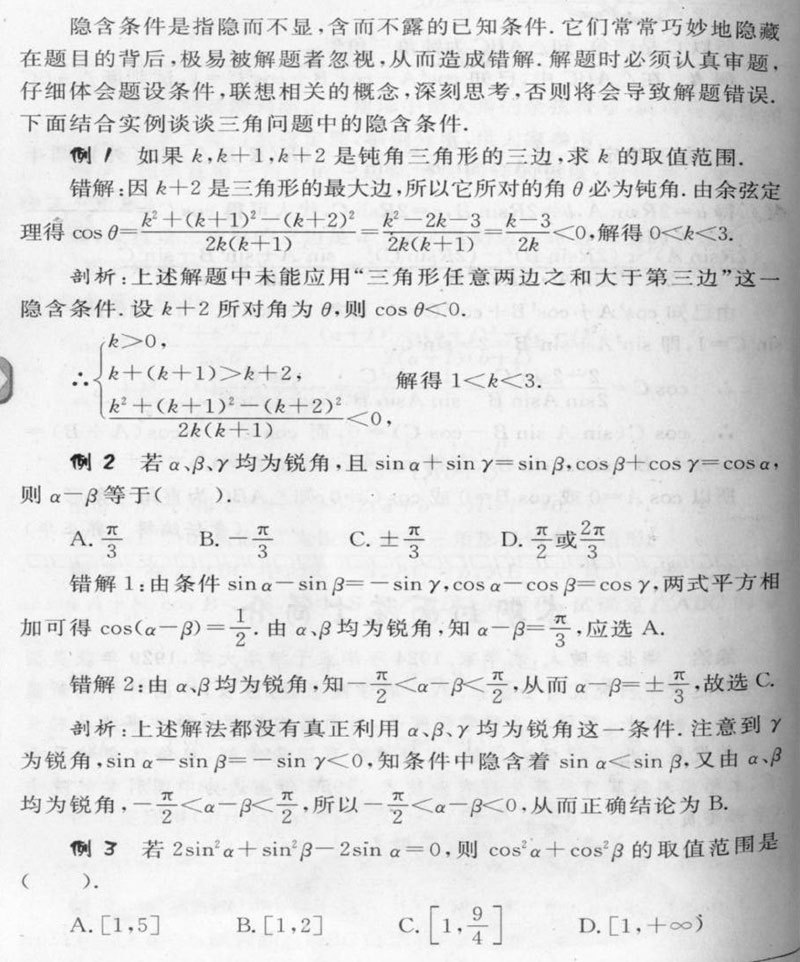 隐含条件是指隐而不显,含而不露的已知条件.它们常常巧妙地隐藏
在题目的背后,极易被解题者忽视,从而造成错解.解题时必须认真审题,
仔细体会题设条件,联想相关的概念,深刻思考,否则将会导致解题错误.
下面结合实例谈谈三角问题中的隐含条件.
例1 如果 k,k+1,k+2 是钝角三角形的三边,求 k 的取值范围.
错解:因 k+2 是三角形的最大边,所以它所对的角 θ 必为钝角.由余弦定
理得 cos θ=\frac{k²+(k+1)²-(k+2)²}{2k(k+1)}=\frac{k²-2k-3}{2k(k+1)}=\frac{k-3}{2k}<0,解得 0<k<3.
剖析:上述解题中未能应用“三角形任意两边之和大于第三边”这一
隐含条件.设 k+2 所对角为 θ,则 cos θ<0.
∴ { k>0,
k+(k+1)>k+2, 解得 1<k<3.
\frac{k²+(k+1)²-(k+2)²}{2k(k+1)}<0,
例2 若 α、β、γ 均为锐角,且 sin α+sin γ=sin β,cos β+cos γ=cos α,
则 α-β 等于( ).
A. \frac{π}{3} B. -\frac{π}{3} C. ±\frac{π}{3} D. \frac{π}{2}或\frac{2π}{3}
错解 1:由条件 sin α-sin β=-sin γ,cos α-cos β=cos γ,两式平方相
加可得 cos(α-β)=\frac{1}{2}.由 α、β 均为锐角,知 α-β=\frac{π}{3},应选 A.
错解 2:由 α、β 均为锐角,知-\frac{π}{2}<α-β<\frac{π}{2},从而 α-β=±\frac{π}{3},故选 C.
剖析:上述解法都没有真正利用 α、β、γ 均为锐角这一条件.注意到 γ
为锐角,sin α-sin β=-sin γ<0,知条件中隐含着 sin α<sin β,又由 α、β
均为锐角,-\frac{π}{2}<α-β<\frac{π}{2},所以-\frac{π}{2}<α-β<0,从而正确结论为 B.
例3 若 2sin²α+sin²β-2sin α=0,则 cos²α+cos²β 的取值范围是
( ).
A. [1,5] B. [1,2] C. [1,\frac{9}{4}] D. [1,+∞)